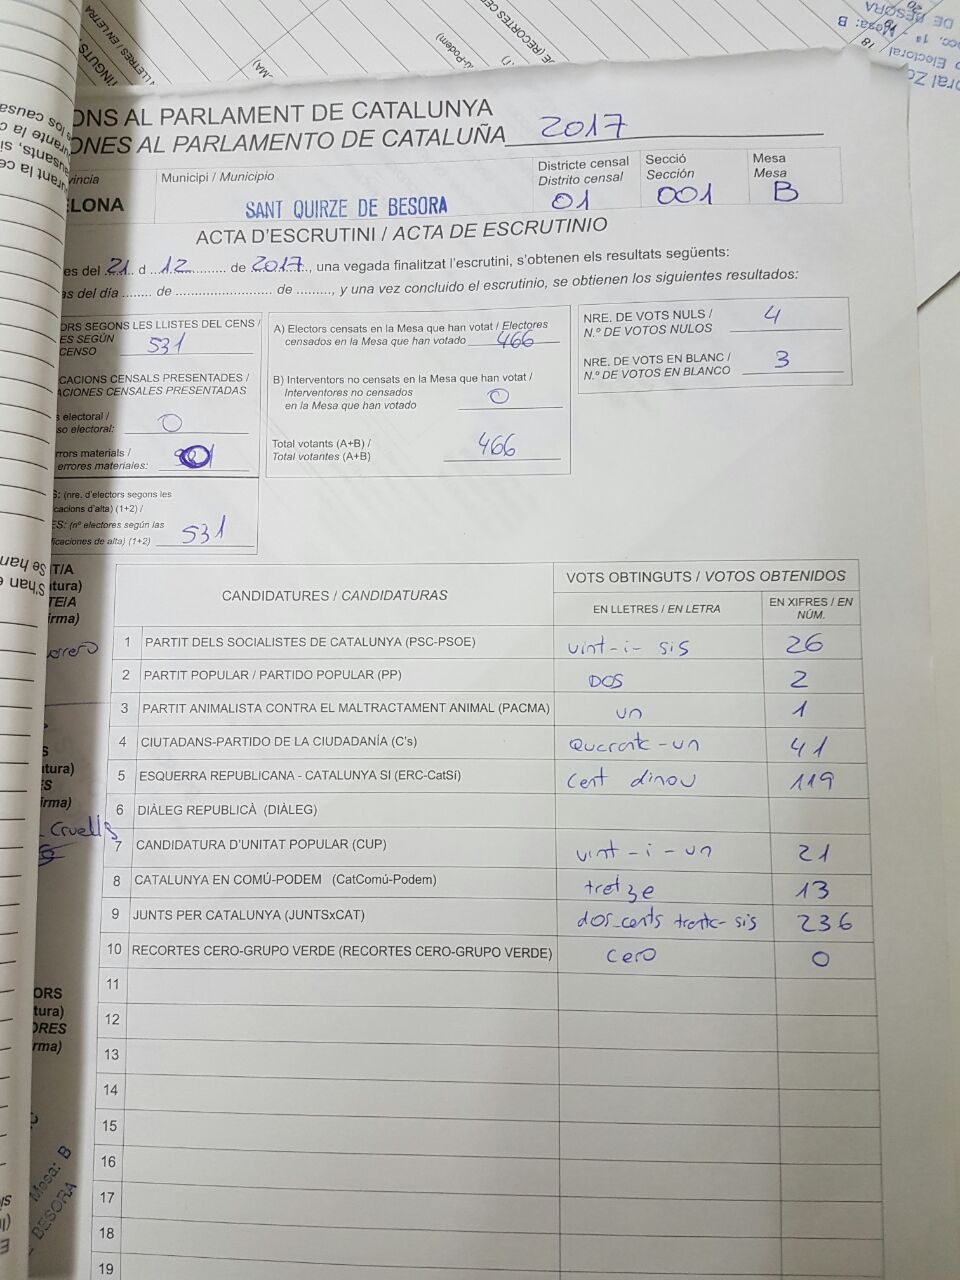 ONS AL PARLAMENT DE CATALUNYA
ONES AL PARLAMENTO DE CATALUÑA 2017
víncia
LONA
Municipi / Municipio
SANT QUIRZE DE BESORA
Districte censal
Distrito censal
01
Secció
Sección
001
Mesa
Mesa
B
ACTA D'ESCRUTINI / ACTA DE ESCRUTINIO
es del 21 d 12 de 2017, una vegada finalitzat l'escrutini, s'obtenen els resultats següents:
as del día ........ de ........................ de ........., y una vez concluido el escrutinio, se obtienen los siguientes resultados:
ORS SEGONS LES LLISTES DEL CENS /
ES SEGÚN
CENSO 531
CACIONS CENSALS PRESENTADES /
ACIONES CENSALES PRESENTADAS
s electoral /
so electoral: 0
rrors materials /
errores materiales:
S: (nre. d'electors segons les
cacions d'alta) (1+2) /
ES: (nº electores según las
ficaciones de alta) (1+2) 531
A) Electors censats en la Mesa que han votat / Electores
censados en la Mesa que han votado 466
B) Interventors no censats en la Mesa que han votat /
Interventores no censados
en la Mesa que han votado 0
Total votants (A+B) /
Total votantes (A+B) 466
NRE. DE VOTS NULS /
N.º DE VOTOS NULOS 4
NRE. DE VOTS EN BLANC /
N.º DE VOTOS EN BLANCO 3
CANDIDATURES / CANDIDATURAS
VOTS OBTINGUTS / VOTOS OBTENIDOS
EN LLETRES / EN LETRA
EN XIFRES / EN NÚM.
1 PARTIT DELS SOCIALISTES DE CATALUNYA (PSC-PSOE) vint-i-sis 26
2 PARTIT POPULAR / PARTIDO POPULAR (PP) DOS 2
3 PARTIT ANIMALISTA CONTRA EL MALTRACTAMENT ANIMAL (PACMA) un 1
4 CIUTADANS-PARTIDO DE LA CIUDADANÍA (C's) Quaranta-un 41
5 ESQUERRA REPUBLICANA - CATALUNYA SI (ERC-CatSí) cent dinou 119
6 DIÀLEG REPUBLICÀ (DIÀLEG)
7 CANDIDATURA D'UNITAT POPULAR (CUP) vint-i-un 21
8 CATALUNYA EN COMÚ-PODEM (CatComú-Podem) tretze 13
9 JUNTS PER CATALUNYA (JUNTSxCAT) dos-cents trenta-sis 236
10 RECORTES CERO-GRUPO VERDE (RECORTES CERO-GRUPO VERDE) cero 0
11
12
13
14
15
16
17
18
19
T/A
tura)
TE/A
irma)
S
tura)
ES
irma)
Cruells
ORS
tura)
ORES
rma)
Mesa: B
BESORA